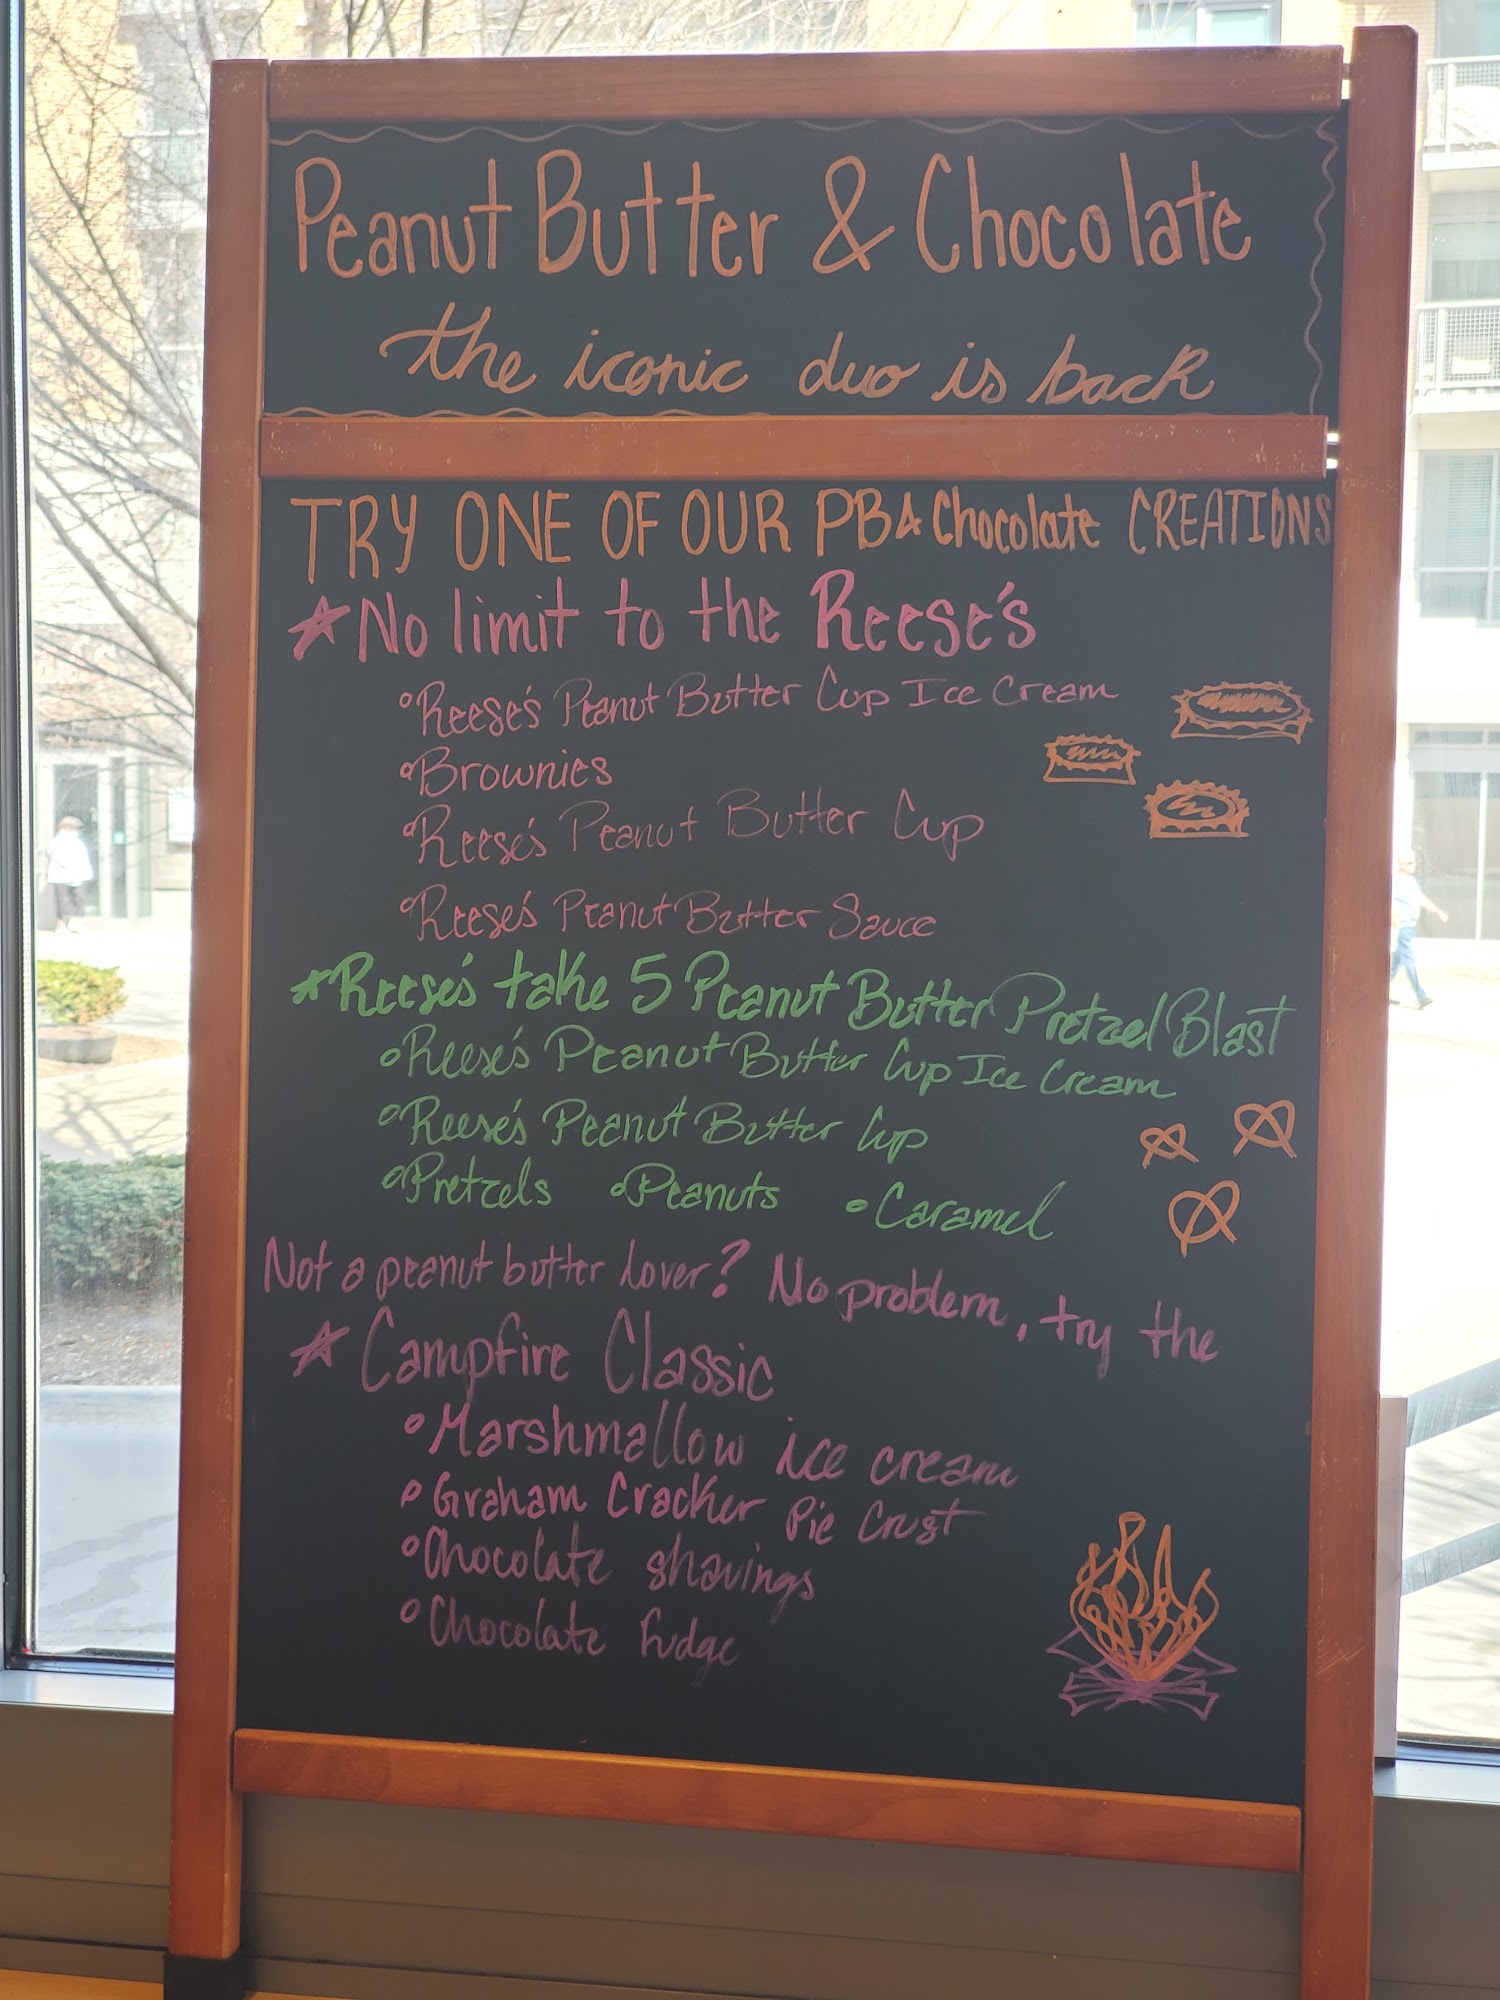 Peanut Butter & Chocolate
the iconic duo is back
TRY ONE OF OUR PB & Chocolate CREATIONS
No limit to the Reese's
Reese's Peanut Butter Cup Ice Cream
Brownies
Reese's Peanut Butter Cup
Reese's Peanut Butter Sauce
Reese's take 5 Peanut Butter Pretzel Blast
Reese's Peanut Butter Cup Ice Cream
Reese's Peanut Butter Cup
Pretzels Peanuts Caramel
Not a peanut butter lover? No problem, try the
Campfire Classic
Marshmallow ice cream
Graham Cracker Pie Crust
Chocolate shavings
Chocolate fudge